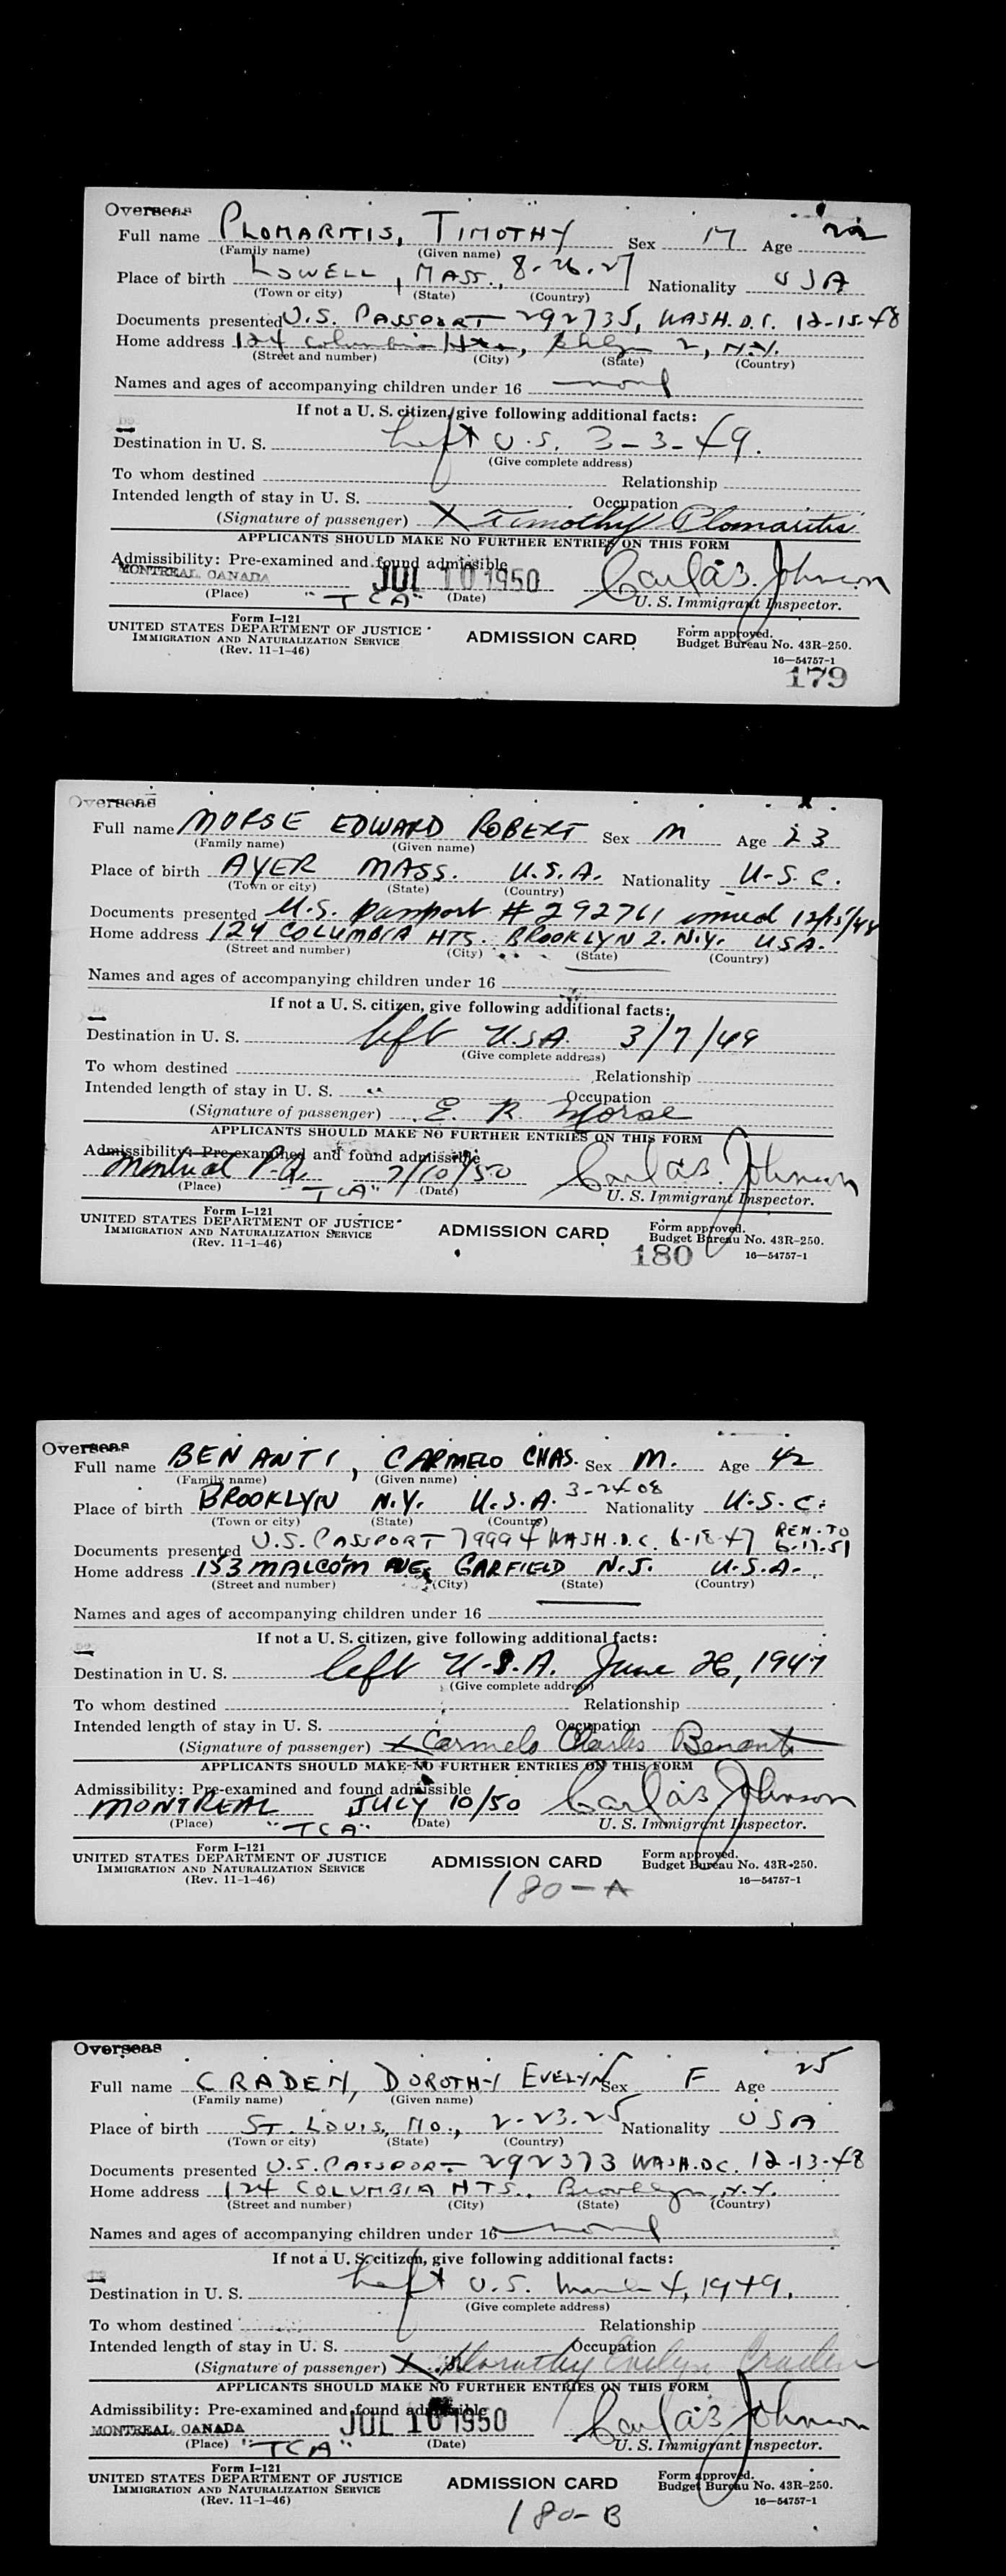 Overseas
Full name PLOMARITIS, TIMOTHY Sex M Age 22
(Family name) (Given name)
Place of birth LOWELL, MASS., 8-26-27 Nationality USA
(Town or city) (State) (Country)
Documents presented U.S. PASSPORT 292735, WASH.D.C. 12-15-48
Home address 124 Columbia Hts., Bklyn 2, N.Y.
(Street and number) (City) (State) (Country)
Names and ages of accompanying children under 16 none
If not a U. S. citizen, give following additional facts:
Destination in U. S. Left U.S. 3-3-49.
(Give complete address)
To whom destined Relationship
Intended length of stay in U. S. Occupation
(Signature of passenger) X Timothy Plomaritis
APPLICANTS SHOULD MAKE NO FURTHER ENTRIES ON THIS FORM
Admissibility: Pre-examined and found admissible
MONTREAL CANADA JUL 10 1950 Carl a B. Johnson
(Place) "TCA" (Date) U. S. Immigrant Inspector.
Form I-121
UNITED STATES DEPARTMENT OF JUSTICE
IMMIGRATION AND NATURALIZATION SERVICE
(Rev. 11-1-46)
ADMISSION CARD
Form approved.
Budget Bureau No. 43R-250.
16—54757-1
179
Overseas
Full name MORSE EDWARD ROBERT Sex M Age 23
(Family name) (Given name)
Place of birth AYER MASS. U.S.A. Nationality U.S.C.
(Town or city) (State) (Country)
Documents presented U.S. Passport # 292761 issued 12/15/48
Home address 124 COLUMBIA HTS. BROOKLYN 2. N.Y. USA.
(Street and number) (City) (State) (Country)
Names and ages of accompanying children under 16
If not a U. S. citizen, give following additional facts:
Destination in U. S. left U.S.A. 3/7/49
(Give complete address)
To whom destined Relationship
Intended length of stay in U. S. Occupation
(Signature of passenger) E. R. Morse
APPLICANTS SHOULD MAKE NO FURTHER ENTRIES ON THIS FORM
Admissibility: Pre-examined and found admissible
Montreal P.Q. 7/10/50 Carl a B. Johnson
(Place) "TCA" (Date) U. S. Immigrant Inspector.
Form I-121
UNITED STATES DEPARTMENT OF JUSTICE
IMMIGRATION AND NATURALIZATION SERVICE
(Rev. 11-1-46)
ADMISSION CARD
Form approved.
Budget Bureau No. 43R-250.
180 16—54757-1
Overseas
Full name BENANTI, CARMELO CHAS. Sex M. Age 42
(Family name) (Given name)
Place of birth BROOKLYN N.Y. U.S.A. 3-24-08 Nationality U.S.C.
(Town or city) (State) (Country)
Documents presented U.S. PASSPORT 79994 WASH.D.C. 6-18-47 REN. TO 6-17-51
Home address 153 MALCOLM AVE. GARFIELD N.J. U.S.A.
(Street and number) (City) (State) (Country)
Names and ages of accompanying children under 16
If not a U. S. citizen, give following additional facts:
Destination in U. S. left U.S.A. June 26, 1947
(Give complete address)
To whom destined Relationship
Intended length of stay in U. S. Occupation
(Signature of passenger) X Carmelo Charles Benanti
APPLICANTS SHOULD MAKE NO FURTHER ENTRIES ON THIS FORM
Admissibility: Pre-examined and found admissible
MONTREAL JULY 10/50 Carl a B. Johnson
(Place) "TCA" (Date) U. S. Immigrant Inspector.
Form I-121
UNITED STATES DEPARTMENT OF JUSTICE
IMMIGRATION AND NATURALIZATION SERVICE
(Rev. 11-1-46)
ADMISSION CARD
Form approved.
Budget Bureau No. 43R-250.
16—54757-1
180-A
Overseas
Full name CRADEN, DOROTHY EVELYN Sex F Age 25
(Family name) (Given name)
Place of birth ST. LOUIS, MO., 2-23-25 Nationality USA
(Town or city) (State) (Country)
Documents presented U.S. PASSPORT 292373 WASH.DC. 12-13-48
Home address 124 COLUMBIA HTS., Brooklyn, N.Y.
(Street and number) (City) (State) (Country)
Names and ages of accompanying children under 16 none
If not a U. S. citizen, give following additional facts:
Destination in U. S. Left U.S. March 4, 1949.
(Give complete address)
To whom destined Relationship
Intended length of stay in U. S. Occupation
(Signature of passenger) X Dorothy Evelyn Craden
APPLICANTS SHOULD MAKE NO FURTHER ENTRIES ON THIS FORM
Admissibility: Pre-examined and found admissible
MONTREAL CANADA JUL 10 1950 Carl a B. Johnson
(Place) "TCA" (Date) U. S. Immigrant Inspector.
Form I-121
UNITED STATES DEPARTMENT OF JUSTICE
IMMIGRATION AND NATURALIZATION SERVICE
(Rev. 11-1-46)
ADMISSION CARD
Form approved.
Budget Bureau No. 43R-250.
16—54757-1
180-B